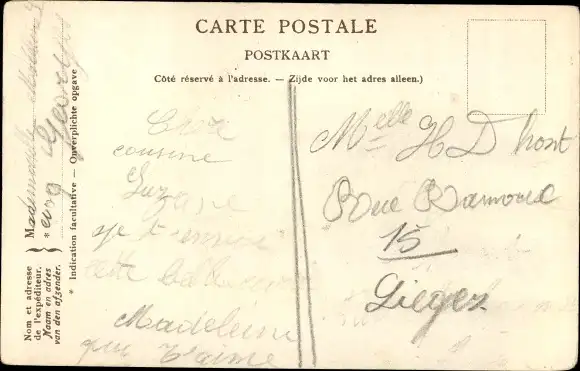 CARTE POSTALE
POSTKAART
Côté réservé à l'adresse. — Zijde voor het adres alleen.)
Chère
cousine
Suzane
je t'envoie
cette belle carte
Madeleine
qui t'aime
Melle H D'hont
Rue Ramoux
15
Lièges
Nom et adresse
de l'expéditeur.
Naam en adres
van den afzender.
Mademoiselle Madeleine
* Georges
* Indication facultative — Onverplichte opgave